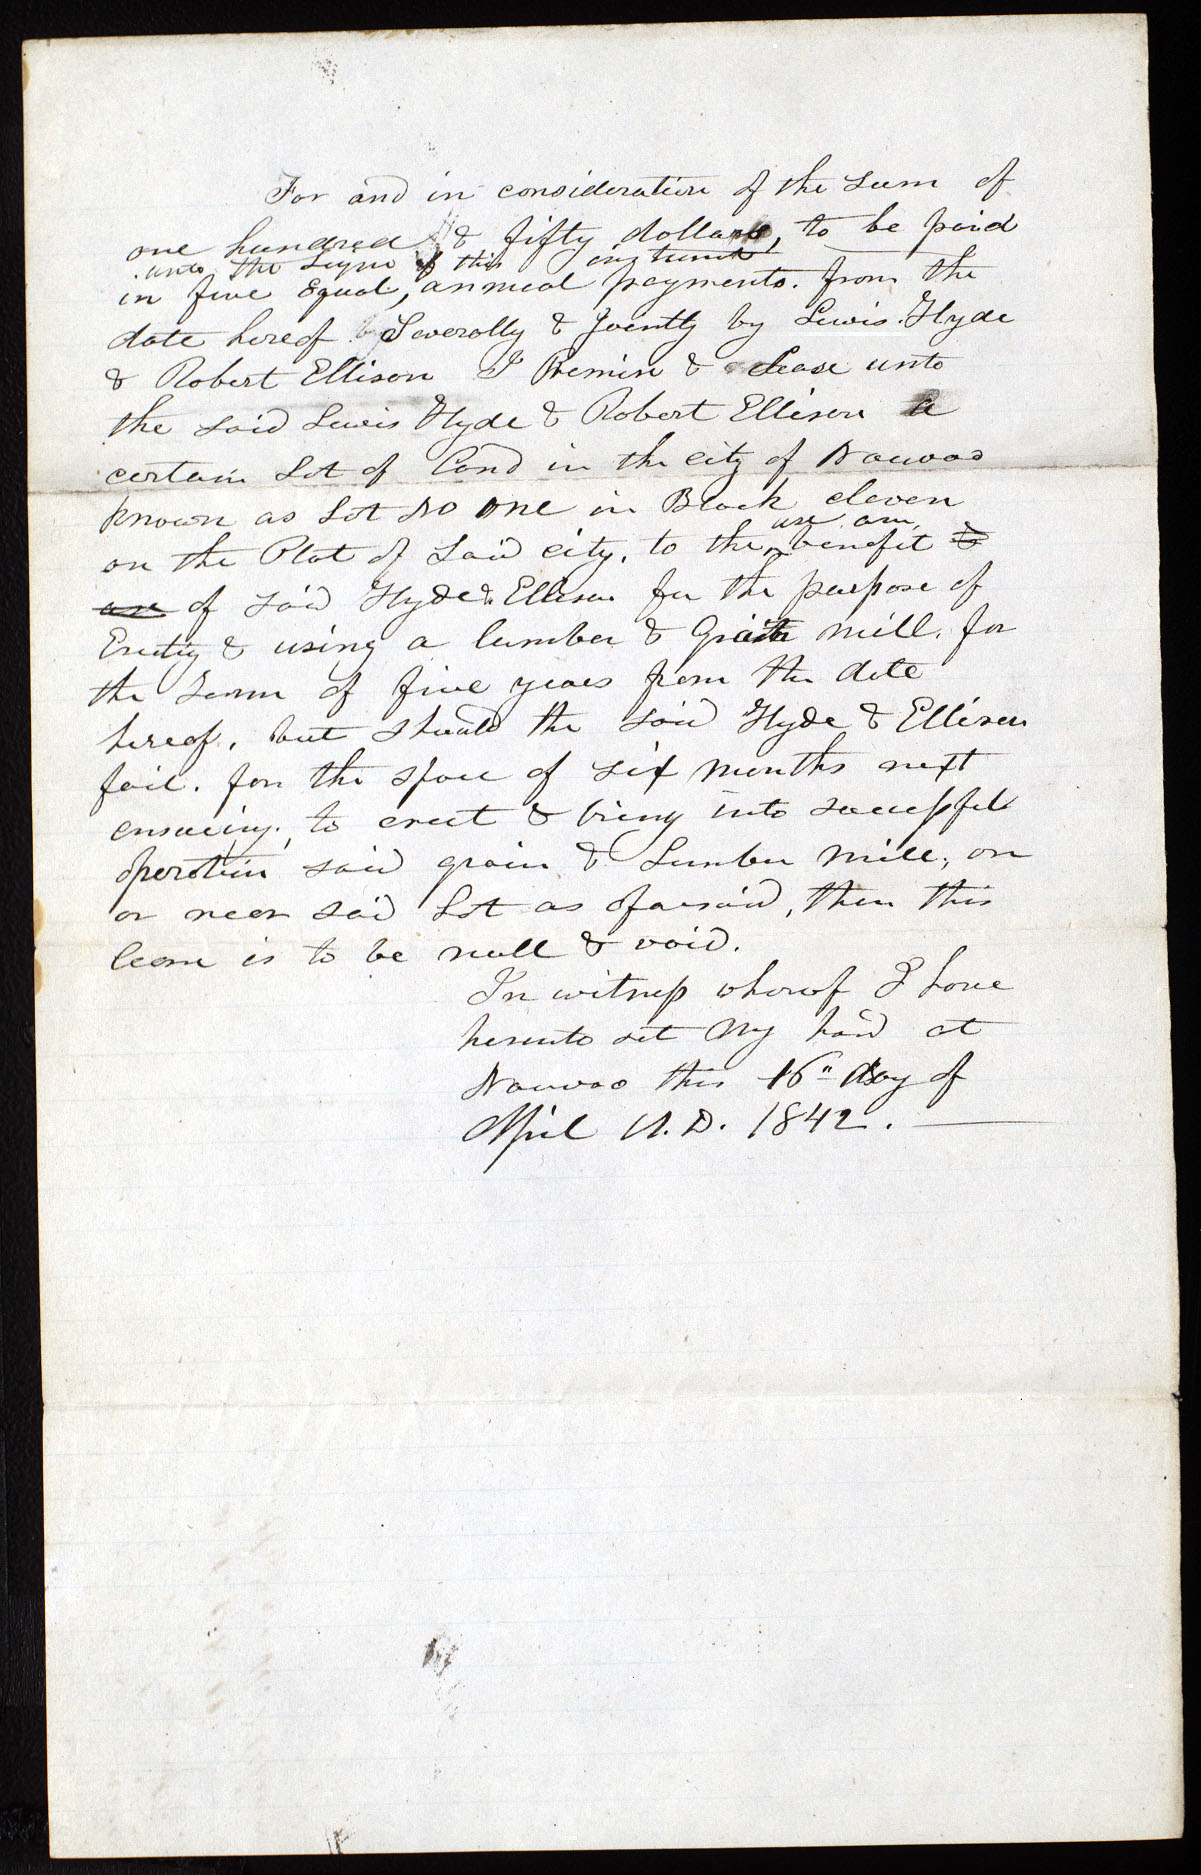 For and in consideration of the sum of
one hundred & fifty dollars, to be paid
unto the signer of this instument
in five Equal, annual payments. from the
date hereof Severally & Joently by Lewis Hyde
& Robert Ellison I Remise & Lease unto
the said Lewis Hyde & Robert Ellison a
certain Lot of Land in the city of Nauvoo
known as Lot No one in Block eleven
use and
on the Plat of said city, to the benefit &
use of said Hyde & Ellison for the purpose of
Erectig & using a lumber & Grain mill. for
the Term of five years from the date
hereof, but should the said Hyde & Ellison
fail. for the space of six months next
ensueing, to erect & bring into successful
operation said grain & Lumber mill, on
or near said Lot as aforesaid, then this
lease is to be null & void.
In witness whereof I have
hereunto set my hand at
Nauvoo this 16" day of
April A.D. 1842.